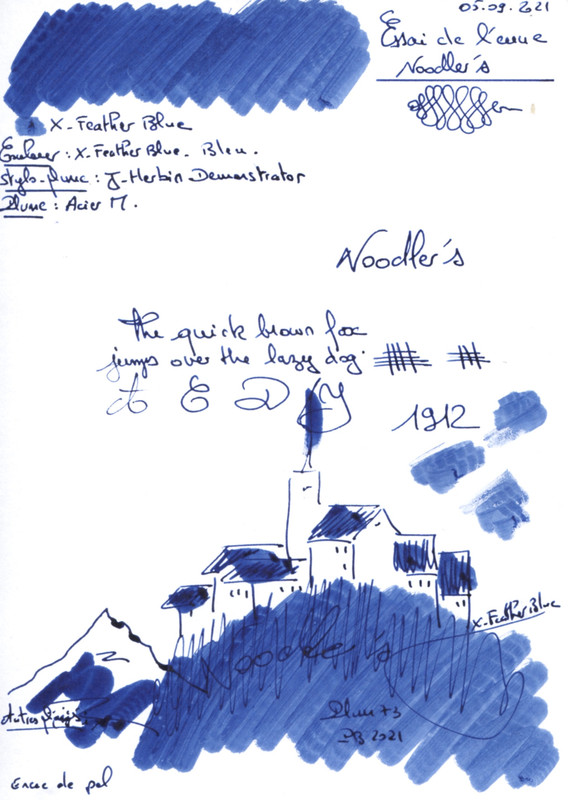 05.09.2021
Essai de l'encre
Noodler's
X-Feather Blue
Couleur : X-Feather Blue - Bleu.
Stylo-plume : J-Herbin Demonstrator
Plume : Acier M.
Noodler's
The quick brown fox
jumps over the lazy dog.
A E D Y
1912
X-Feather Blue
Noodler's
2021